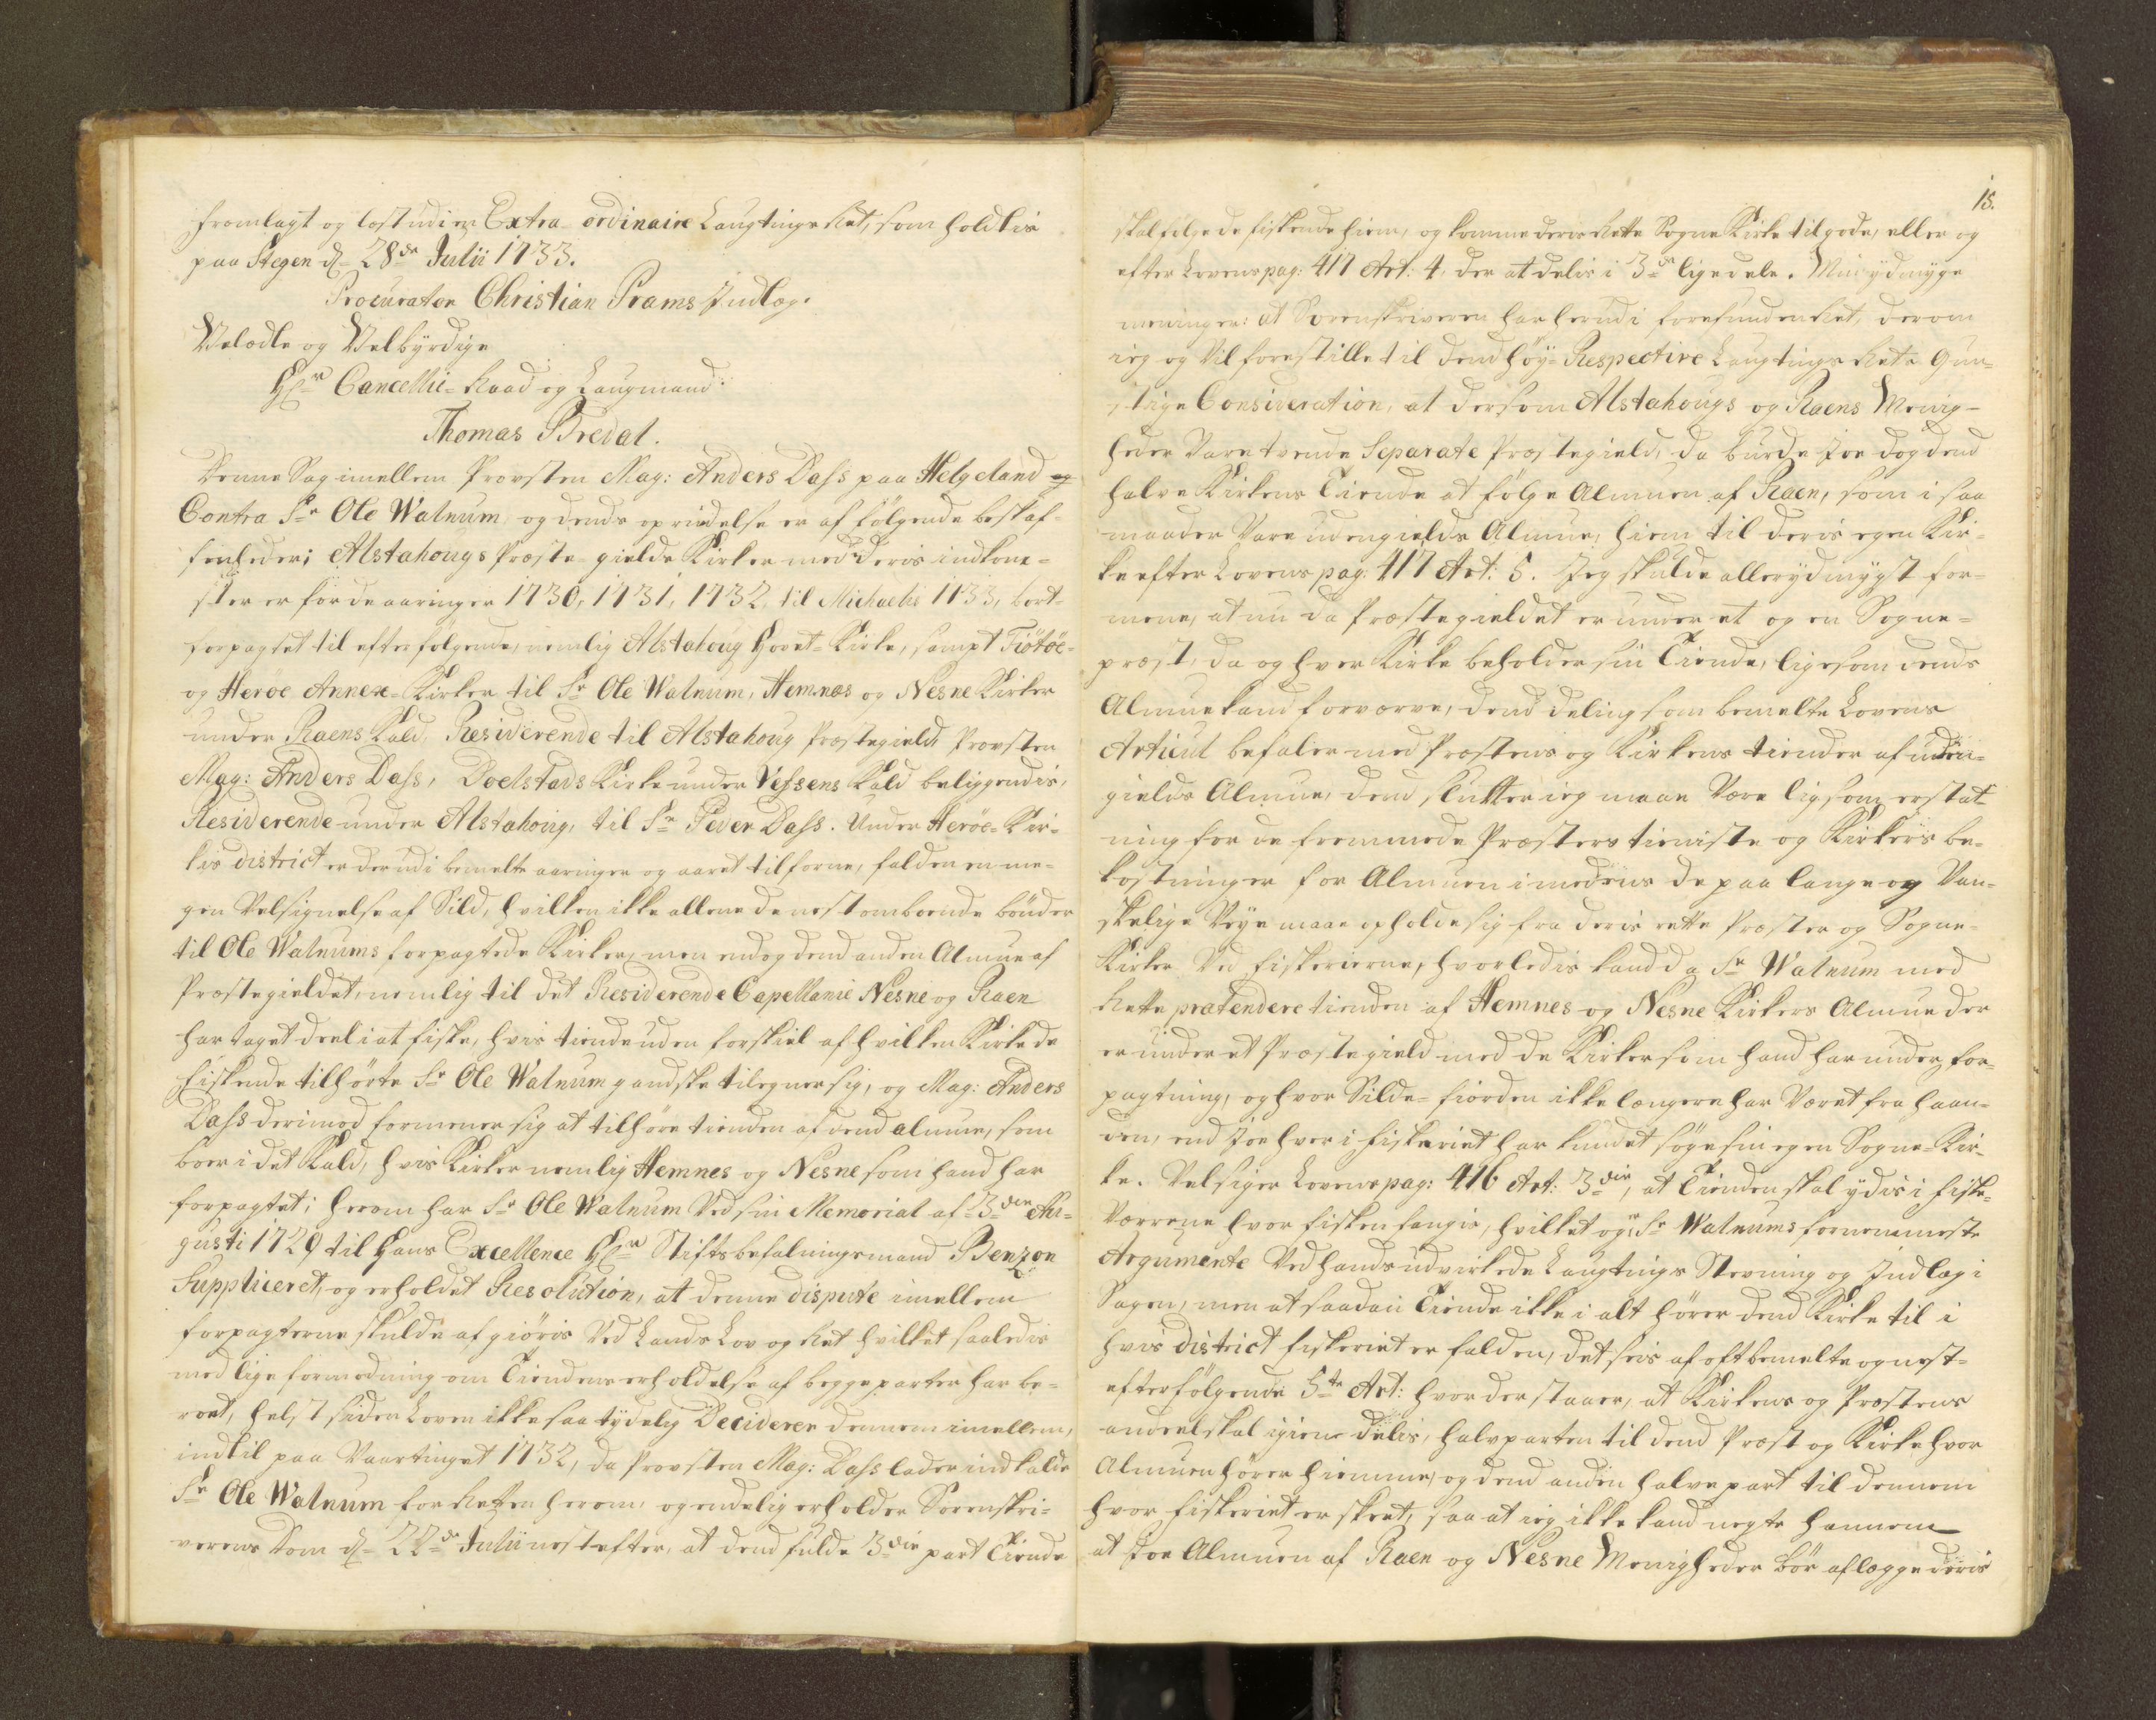 fremlagt og læst udi en Extra ordinaire Laugtings Ret, som holdtis
paa Stegen d. 28de Julii 1733.
Procurator Christian Prams Indlæg.
Velædle og Velbyrdige
Hr Cancellie-Raad og Laugmand
Thomas Bredal.
Denne Sag imellem Provsten Mag: Anders Dass paa Helgeland
Contra Sr Ole Walnum og dends oprindelse er af følgende beskaf-
fenheder; Alstahougs Præste-gields Kirker med deris indkom-
ster er for de aaringer 1730, 1731, 1732 til Michaelis 1733, bort-
forpagtet til efterfølgende, nemlig Alstahoug Hovet-Kirke, sampt Tiøtøe-
og Herøe Annex-Kirker til Sr Ole Walnum, Hemnæs og Nesne Kirker
under Raens Kald, Residerende til Alstahoug Præstegield, Provsten
Mag: Anders Dass, Doelstads Kirke under Vefsens Kald beliggendis,
Residerende under Alstahoug, til Sr Peder Dass. Under Herøe-Kir-
kes district er der udi bemelte aaringer og aaret tilforne, falden en me-
gen Velsignelse af Sild, hvilken ikke allene de nest omboende bønder
til Ole Walnums forpagtede Kirker, men endog dend anden Almue af
Præstegieldet, nemlig til det Residerende Capellanie Nesne og Raen
har taget deel i at fiske, hvis tiende uden forskiel af hvilken Kirke de
fiskende tilhørte Sr Ole Walnum gandske tilegner sig, og Mag: Anders
Dass derimod formener sig at tilhøre tienden af dend almue, som
boer i det Kald, hvis Kirker nemlig Hemnes og Nesne som hand har
forpagtet; herom har Sr Ole Walnum Ved sin Memorial af 3den Au-
gusti 1729 til Hans Excellence Hr Stiftsbefalningsmand Benzon
Suppliceret, og erholdet Resolution, at denne dispute imellem
forpagterne skulde afgiøris Ved Lands Lov og Ret hvilket saaledis
med lige formodning om Tiendens erholdelse af begge parter har be-
roet, helst siden Loven ikke saa tydelig Deciderer dennem imellem,
indtil paa Vaartinget 1732, da Provsten Mag: Dass lader indkalde
Sr Ole Walnum for Retten herom, og endelig erholder Sorenskri-
verens Dom d. 22de Julii nest efter, at dend fulde 3die part Tiende
15.
skal følge de fiskende hiem, og komme deris Rette Sogne Kirke tilgode, eller og
efter Lovens pag: 417 Art: 4. der at delis i 3de ligedele. Min ydmyge
meninger: at Sorenskriveren har herudi forefunden Ret, derom
ieg og Vil forestille til dend høy-Respective Laugtings Rets Gun-
stige Consideration, at dersom Alstahougs og Raens Menig-
heder Vare tvende Separate Præstegield, da burde Joe dog dend
halve Kirkens Tiende at følge Almuen af Raen, som i saa
maader Vare udengields Almue, hiem til deris egen Kir-
ke efter Lovens pag: 417 Art: 5. Jeg skulde allerydmygst for-
mene, at nu da Præstegieldet er under et og en Sogne-
præst, da og hver Kirke beholder sin Tiende, ligesom dends
Almue kand forværve, dend deling som bemelte Lovens
Articul befaler med Præstens og Kirkens tiender af uden-
gields Almue, dend slutter ieg maae Være lig som erstat-
ning for de fremmede Præsters tieniste og Kirkers be-
kostninger for Almuen imedens de paa lange og Van-
skelige Veye maae opholde sig fra deris rette Præster og Sogne-
Kirker Ved fiskerierne, hvorledis kand da Sr Walnum med
Rette prætendere tienden af Hemnes og Nesne Kirkers Almue der
er under et Præstegield med de Kirker som hand har under for-
pagtning, og hvor Silde-fiorden ikke længere har Været fra haan-
den, end Joe hver i fiskeriet har kundet søge sin egen Sogne-Kir-
ke. Vel siger Lovens pag: 416 Art: 3die, at Tienden skal ydis i fiske-
Værrene hvor fisken fangis, hvilket og er Sr Walnums fornemmeste
Argumente Ved hands udvirkede Laugtings Stevning og Indlæg i
Sagen, men at saadan Tiende ikke i alt hører dend Kirke til i
hvis district fiskeriet er falden, det seis af oftbemelte og nest-
efterfølgende 5te Art: hvor der staaer, at Kirkens og Præstens
andeel skal igien delis, halvparten til dend Præst og Kirke hvor
Almuen hører hiemme, og dend anden halve part til dennem
hvor fiskeriet er skeet, saa at ieg ikke kand negte hannem
at Joe Almuen af Raen og Nesne Menigheder bør aflægge deris